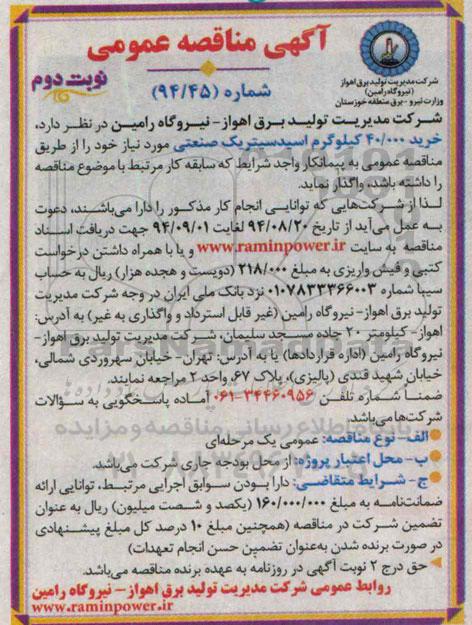 آگهی مناقصه عمومی
نوبت دوم
شماره (۹۴/۴۵)
شرکت مدیریت تولید برق اهواز
(نیروگاه رامین)
وزارت نیرو - برق منطقه خوزستان
شرکت مدیریت تولید برق اهواز- نیروگاه رامین در نظر دارد،
خرید ۴۰/۰۰۰ کیلوگرم اسیدسیتریک صنعتی مورد نیاز خود را از طریق
مناقصه عمومی به پیمانکار واجد شرایط که سابقه کار مرتبط با موضوع مناقصه
را داشته باشد، واگذار نماید.
لـذا از شـرکت‌هایی که توانایی انجام کار مذکـور را دارا می‌باشـند، دعوت
به عمل می‌آید از تاریخ ۹۴/۰۸/۲۰ لغایت ۹۴/۰۹/۰۱ جهت دریافت اسـناد
مناقصه به سایت www.raminpower.ir و یا با همراه داشتن درخواست
کتبی و فیش واریزی به مبلغ ۲۱۸/۰۰۰ (دویست و هجده هزار) ریال به حساب
سیبا شماره ۰۱۰۷۸۳۳۳۶۶۰۰۳ نزد بانک ملی ایران در وجه شرکت مدیریت
تولید برق اهواز- نیروگاه رامین (غیر قابل استرداد و واگذاری به غیر) به آدرس:
اهواز- کیلومتر ۲۰ جاده مسـجد سلیمان، شرکت مدیریت تولید برق اهواز-
نیروگاه رامین (اداره قراردادها) یا به آدرس: تهران- خیابان سهروردی شمالی،
خیابان شهید قندی (پالیزی)، پلاک ۶۷، واحد ۲ مراجعه نمایند.
ضمنـاً شـماره تلفـن ۳۴۴۶۰۹۵۶-۰۶۱ آماده پاسـخگویی به سـؤالات
شرکت‌ها می‌باشد.
الف- نوع مناقصه: عمومی یک مرحله‌ای
ب- محل اعتبار پروژه: از محل بودجه جاری شرکت می‌باشد.
ج- شـرایط متقاضـی: دارا بـودن سـوابق اجرایی مرتبـط، توانایی ارائه
ضمانت‌نامـه به مبلـغ ۱۶۰/۰۰۰/۰۰۰ (یکصد و شـصت میلیون) ریال به عنوان
تضمین شرکت در مناقصه (همچنین مبلغ ۱۰ درصد کل مبلغ پیشـنهادی
در صورت برنده شدن به‌عنوان تضمین حسن انجام تعهدات)
حق درج ۲ نوبت آگهی در روزنامه به عهده برنده مناقصه می‌باشد.
روابط عمومی شرکت مدیریت تولید برق اهواز - نیروگاه رامین
www.raminpower.ir